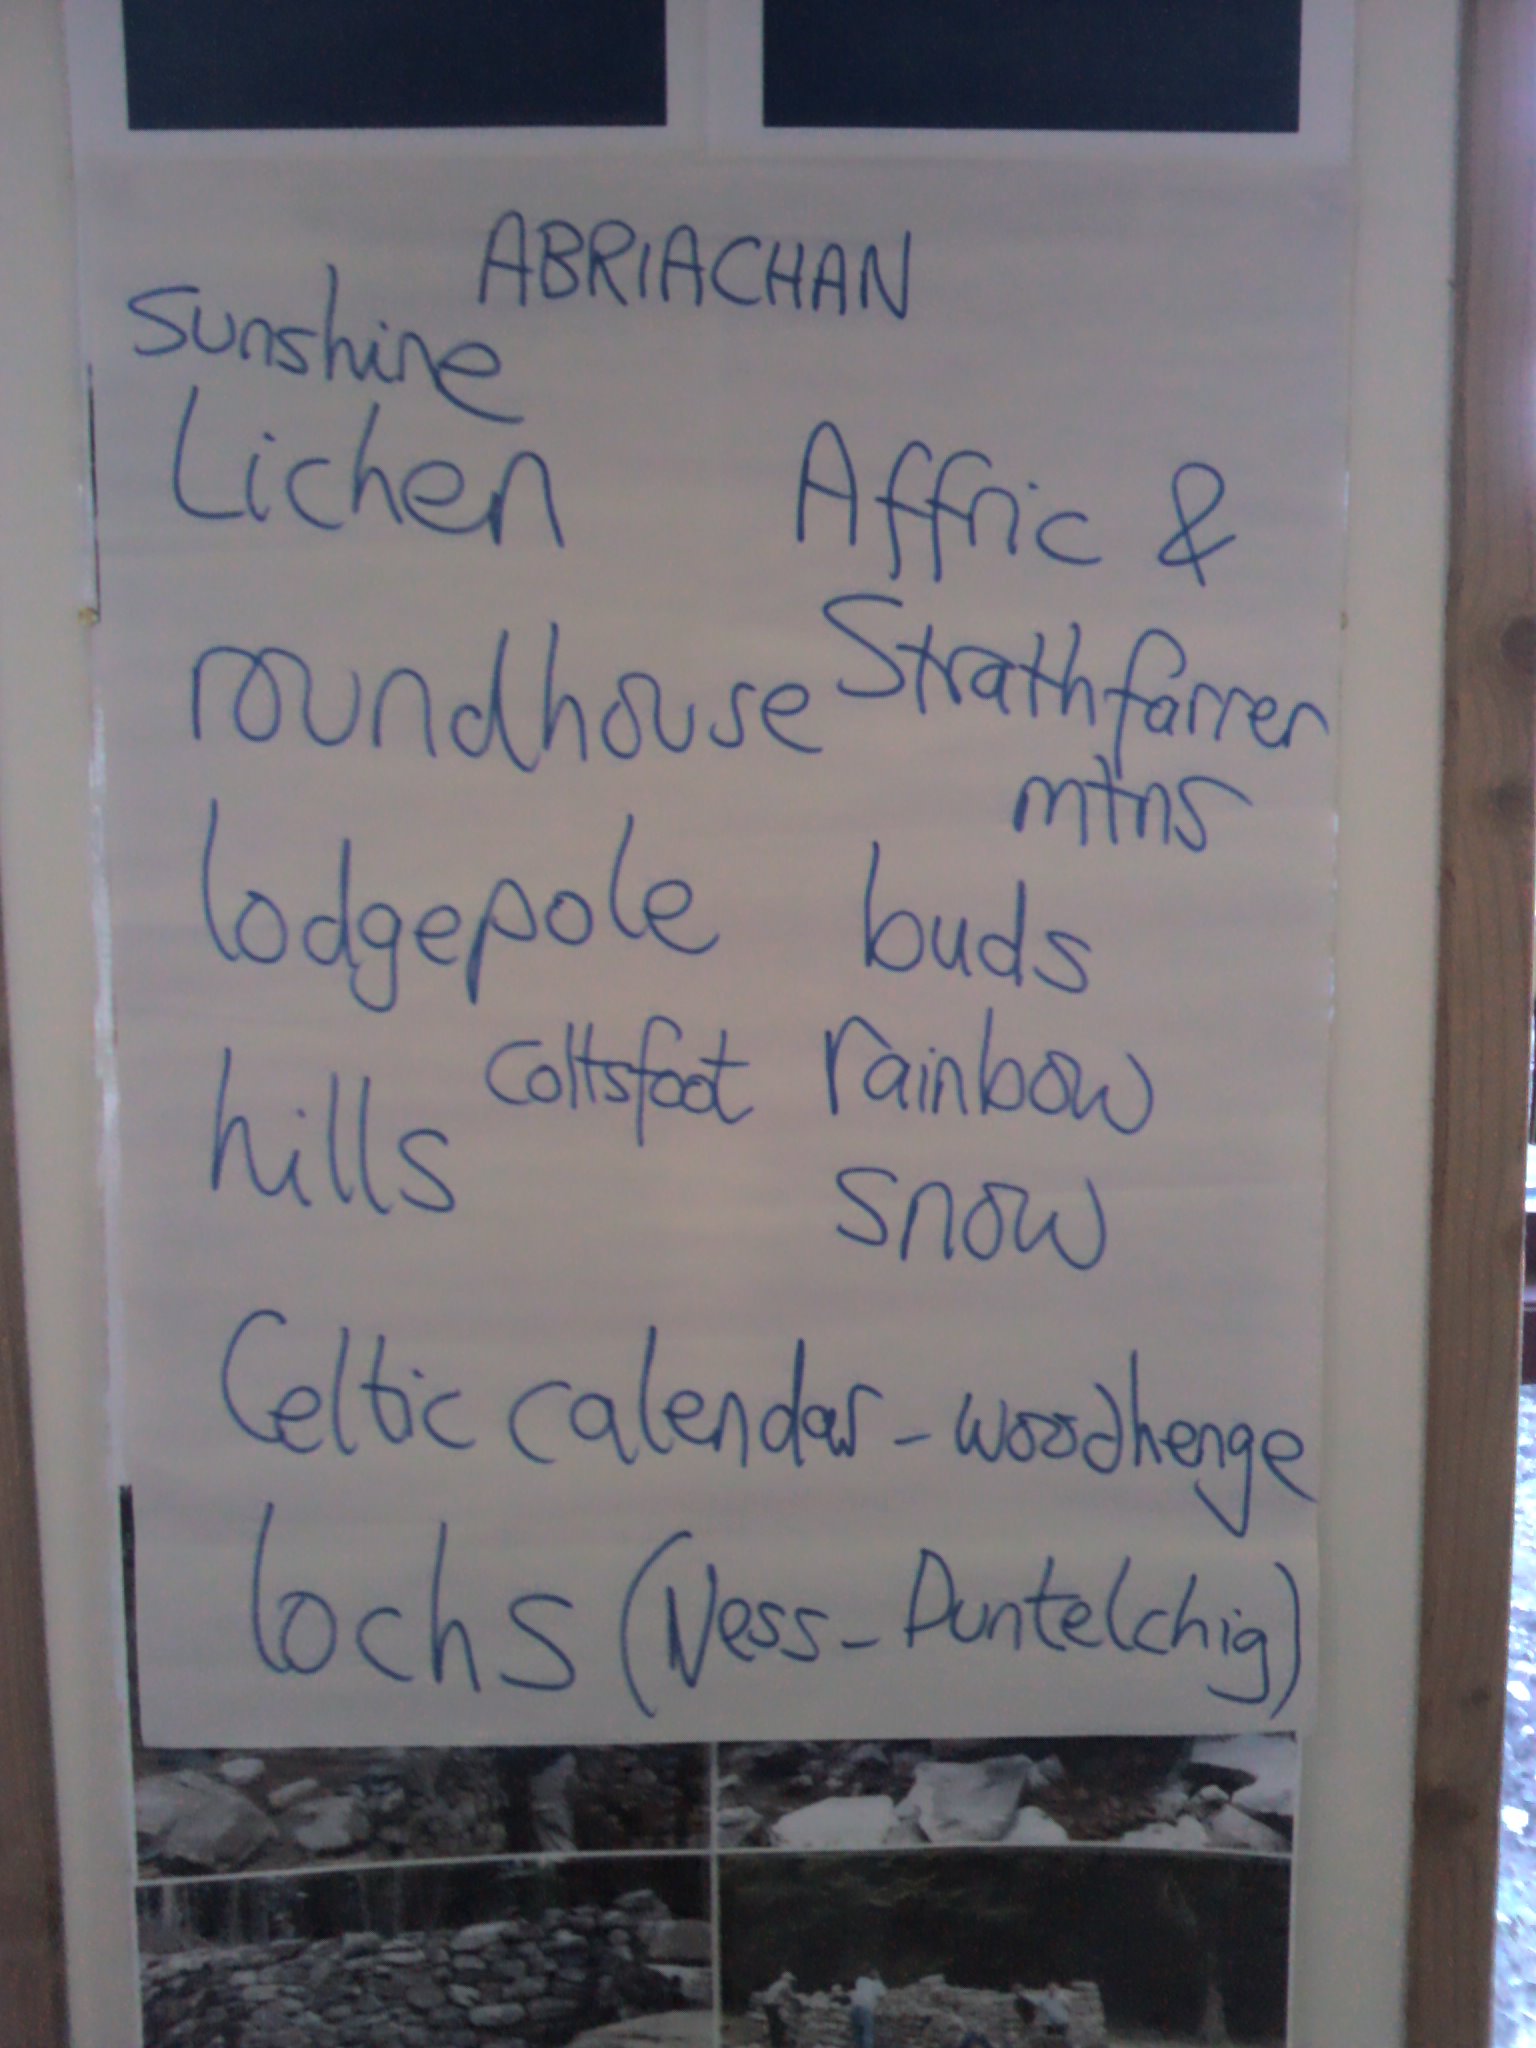 ABRIACHAN
Sunshine
Lichen
Affric &
roundhouse
Strathfarrer
mtns
lodgepole
buds
hills
Coltsfoot
rainbow
snow
Celtic calendar - woodhenge
lochs (Ness - Duntelchig)